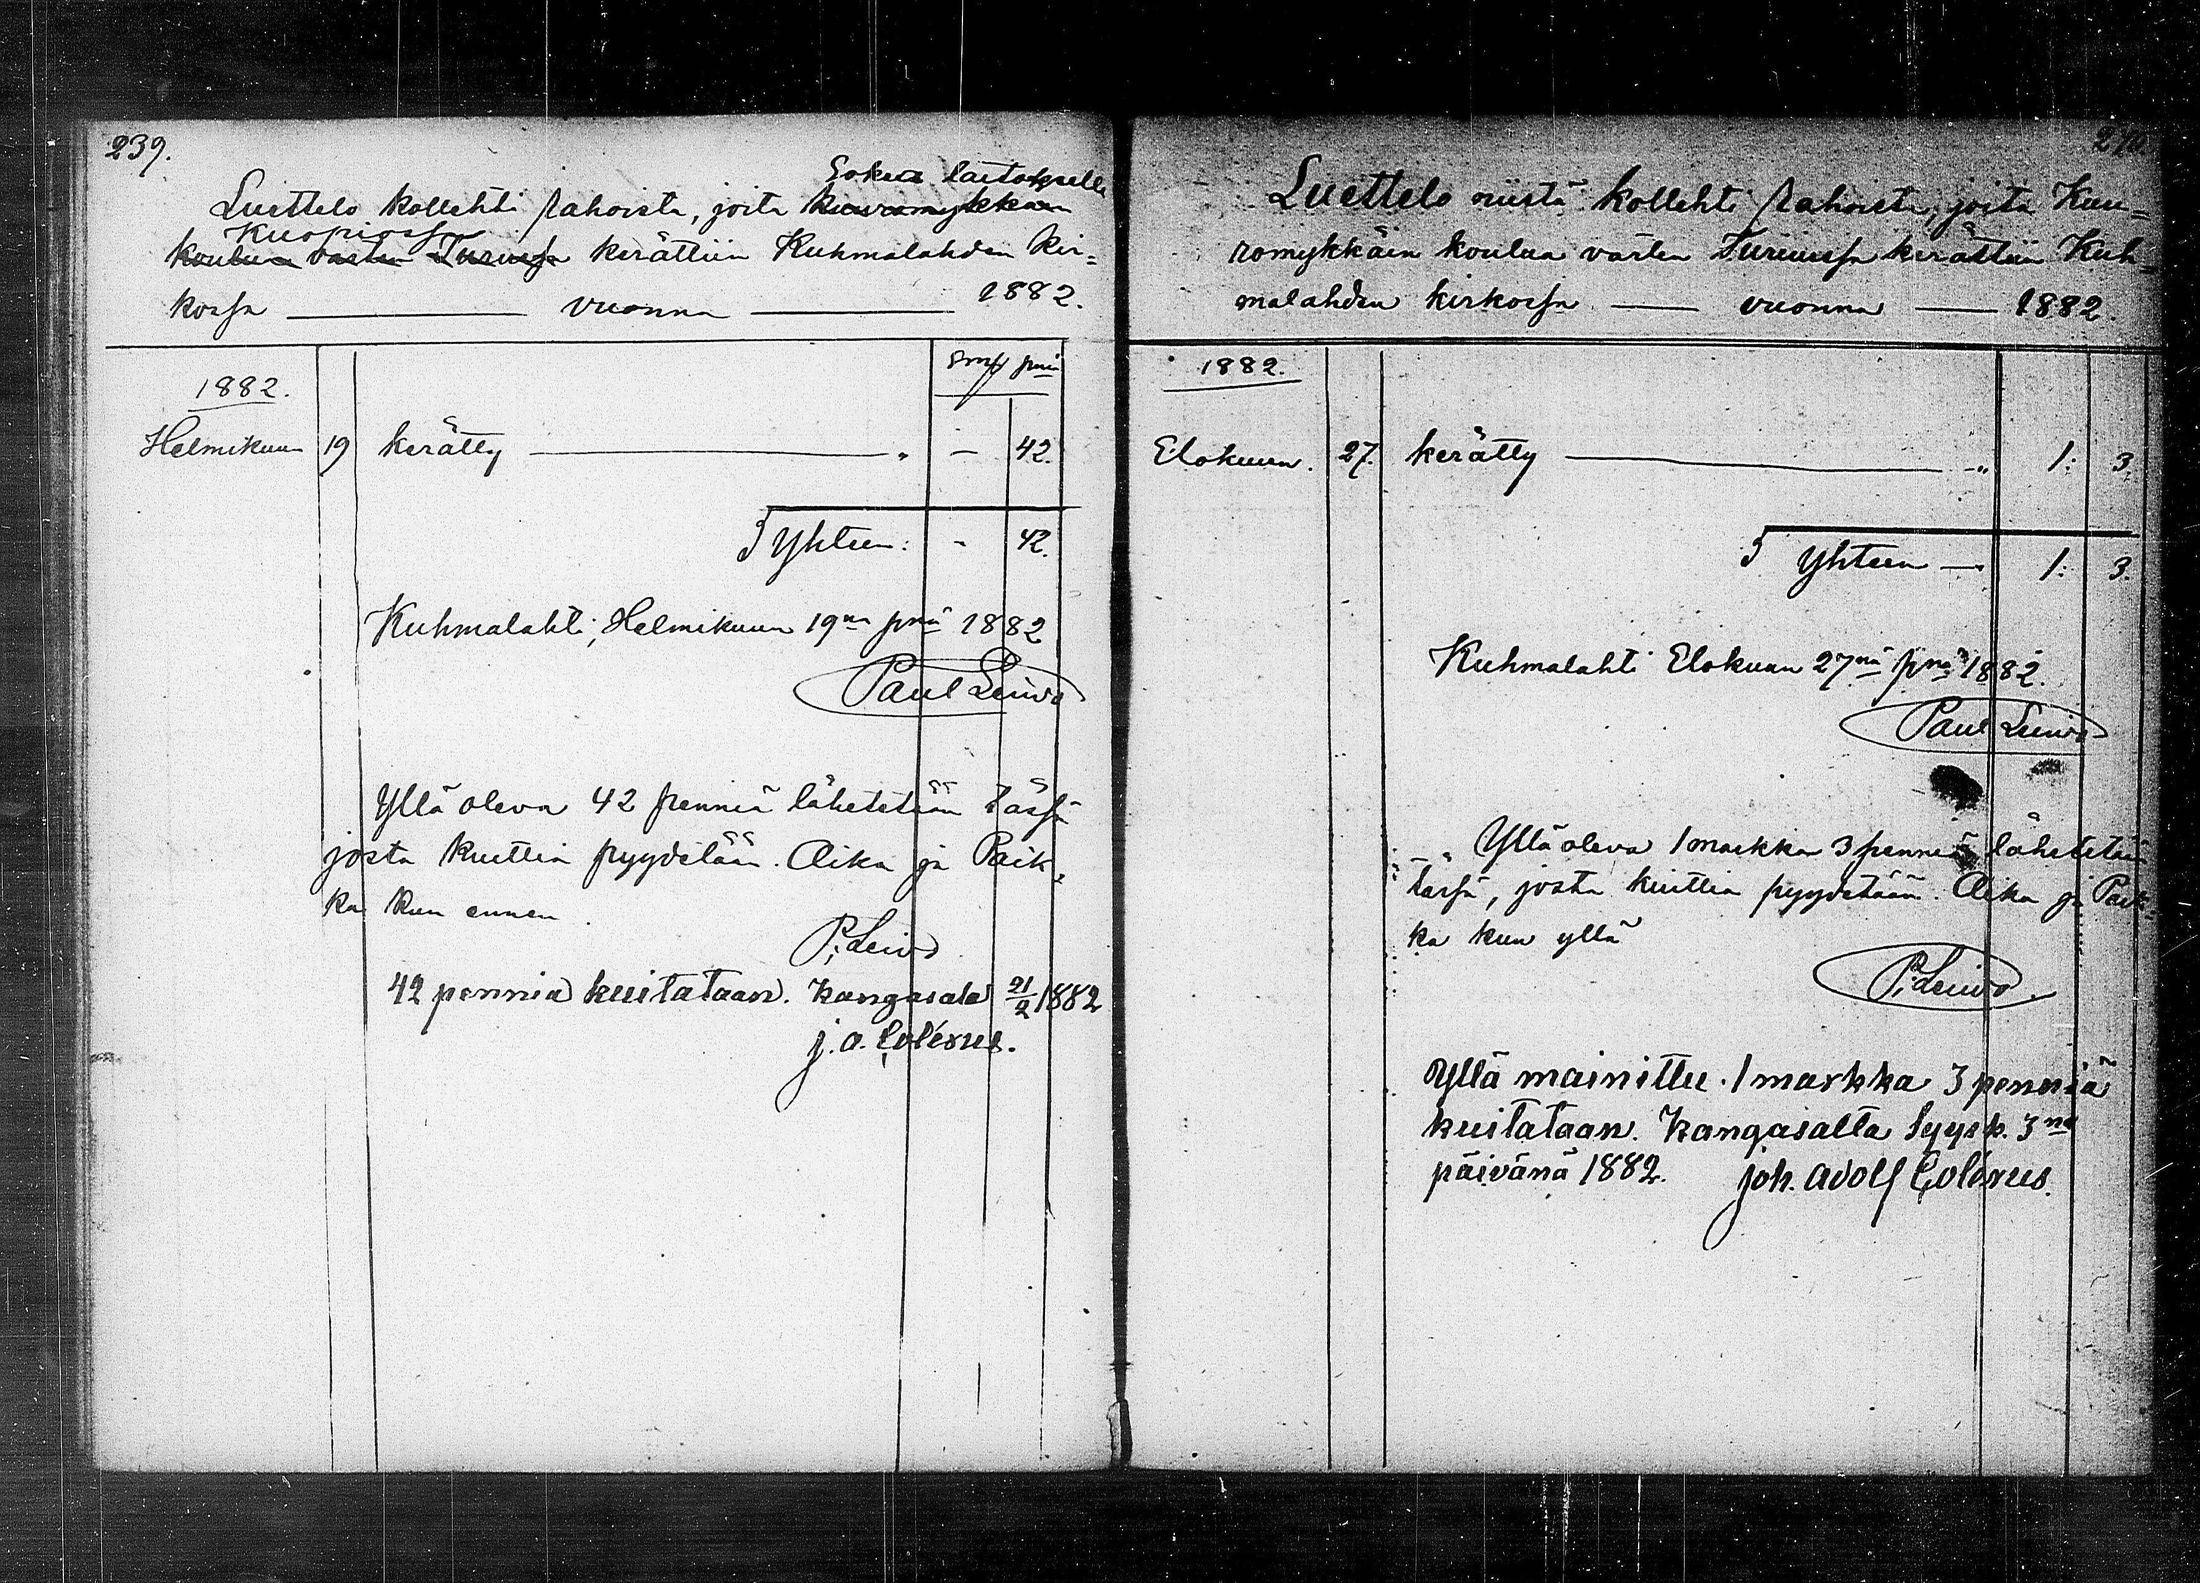 239.
Sokea laitokselle
Luettelo kollehti rahoista, joita kuuromykkäen
Kuopiossa
koulua varten Turussa kerättiin Kuhmalahden kir=
kossa — vuonna — 1882.
Smk pniä
1882.
Helmikuun 19 kerätty — " — 42.
Yhteen: - 42.
Kuhmalahti, Helmikuun 19na pnä 1882
Paul Leivo
Yllä oleva 42 penniä lähetetään tässä
josta kuittia pyydetään. Aika ja Paik=
ka kun ennen
P. Leivo
42 penniä kuitataan. Kangasala 21/2 1882
j. a. Colérus.
240
Luettelo niistä kollehti rahoista, joita Kuu=
romykkäin koulua varten Turussa kerättiin Kuh=
malahden kirkossa — vuonna — 1882.
1882.
Elokuun. 27. kerätty — " 1: 3.
Yhteen — 1: 3.
Kuhmalahti Elokuun 27nä pnä 1882.
Paul Leivo
Yllä oleva 1 markka 3 penniä lähetetään
tässä, josta kuittia pyydetään. Aika ja Paik=
ka kun yllä
P. Leivo.
Yllä mainittu 1 markka 3 penniä
kuitataan. Kangasalta Syysk. 3na
päivänä 1882. Joh. Adolf Colérus.